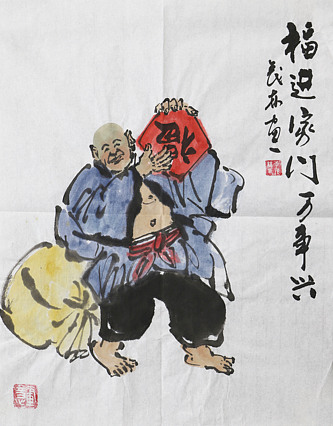 福進家门万事兴
茂林画
福